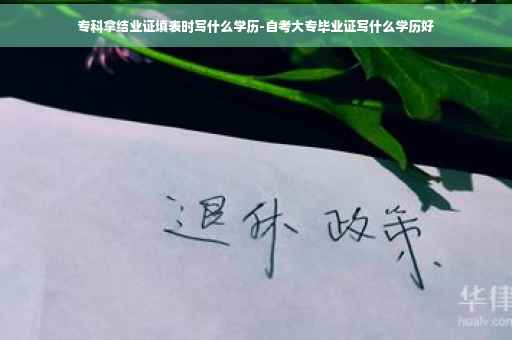 专科拿结业证填表时写什么学历-自考大专毕业证写什么学历好
退休 政策
华律
hualv.com